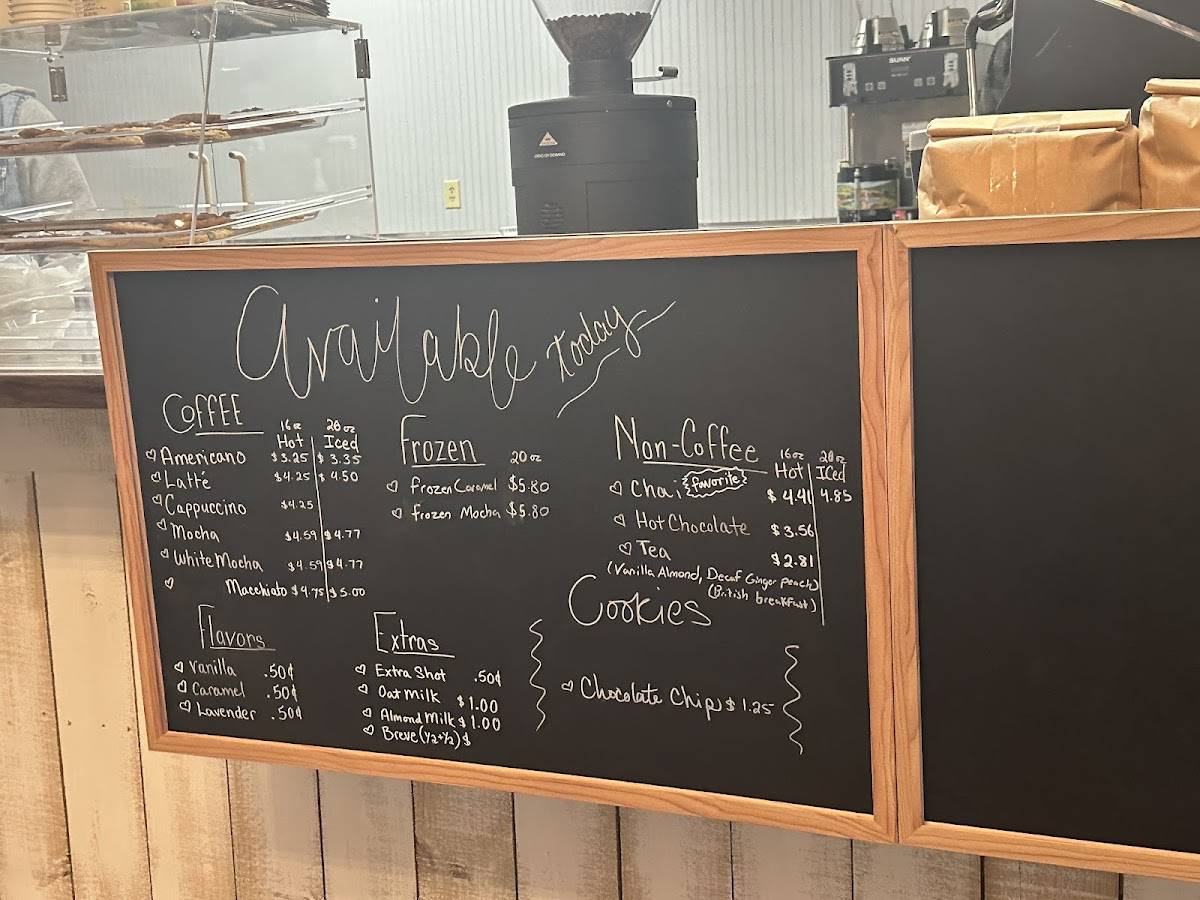 Available today
COFFEE
16oz 20oz
Hot Iced
Americano $3.25 $3.35
Latté $4.25 $4.50
Cappuccino $4.25
Mocha $4.59 $4.77
White Mocha $4.59 $4.77
Macchiato $4.75 $5.00
Frozen 20oz
frozen Caramel $5.80
frozen Mocha $5.80
Non-Coffee
16oz 20oz
Hot Iced
Chai favorite $4.41 4.85
Hot Chocolate $3.56
Tea $2.81
(Vanilla Almond, Decaf Ginger peach)
(British breakfast)
Flavors
Vanilla .50¢
Caramel .50¢
Lavender .50¢
Extras
Extra Shot .50¢
Oat Milk $1.00
Almond Milk $1.00
Breve (½+½) $
Cookies
Chocolate Chip $1.25
BUNN